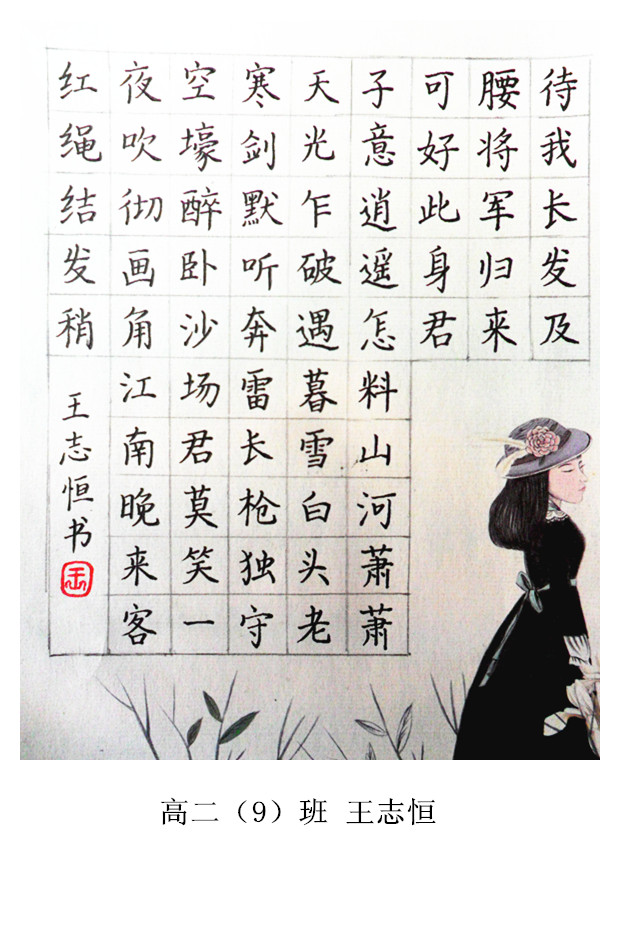 待我长发及
腰将军归来
可好此身君
子意逍遥怎料山河萧萧
天光乍破遇暮雪白头老
寒剑默听奔雷长枪独守
空壕醉卧沙场君莫笑一
夜吹彻画角江南晚来客
红绳结发稍
王志恒书
王
高二（9）班 王志恒